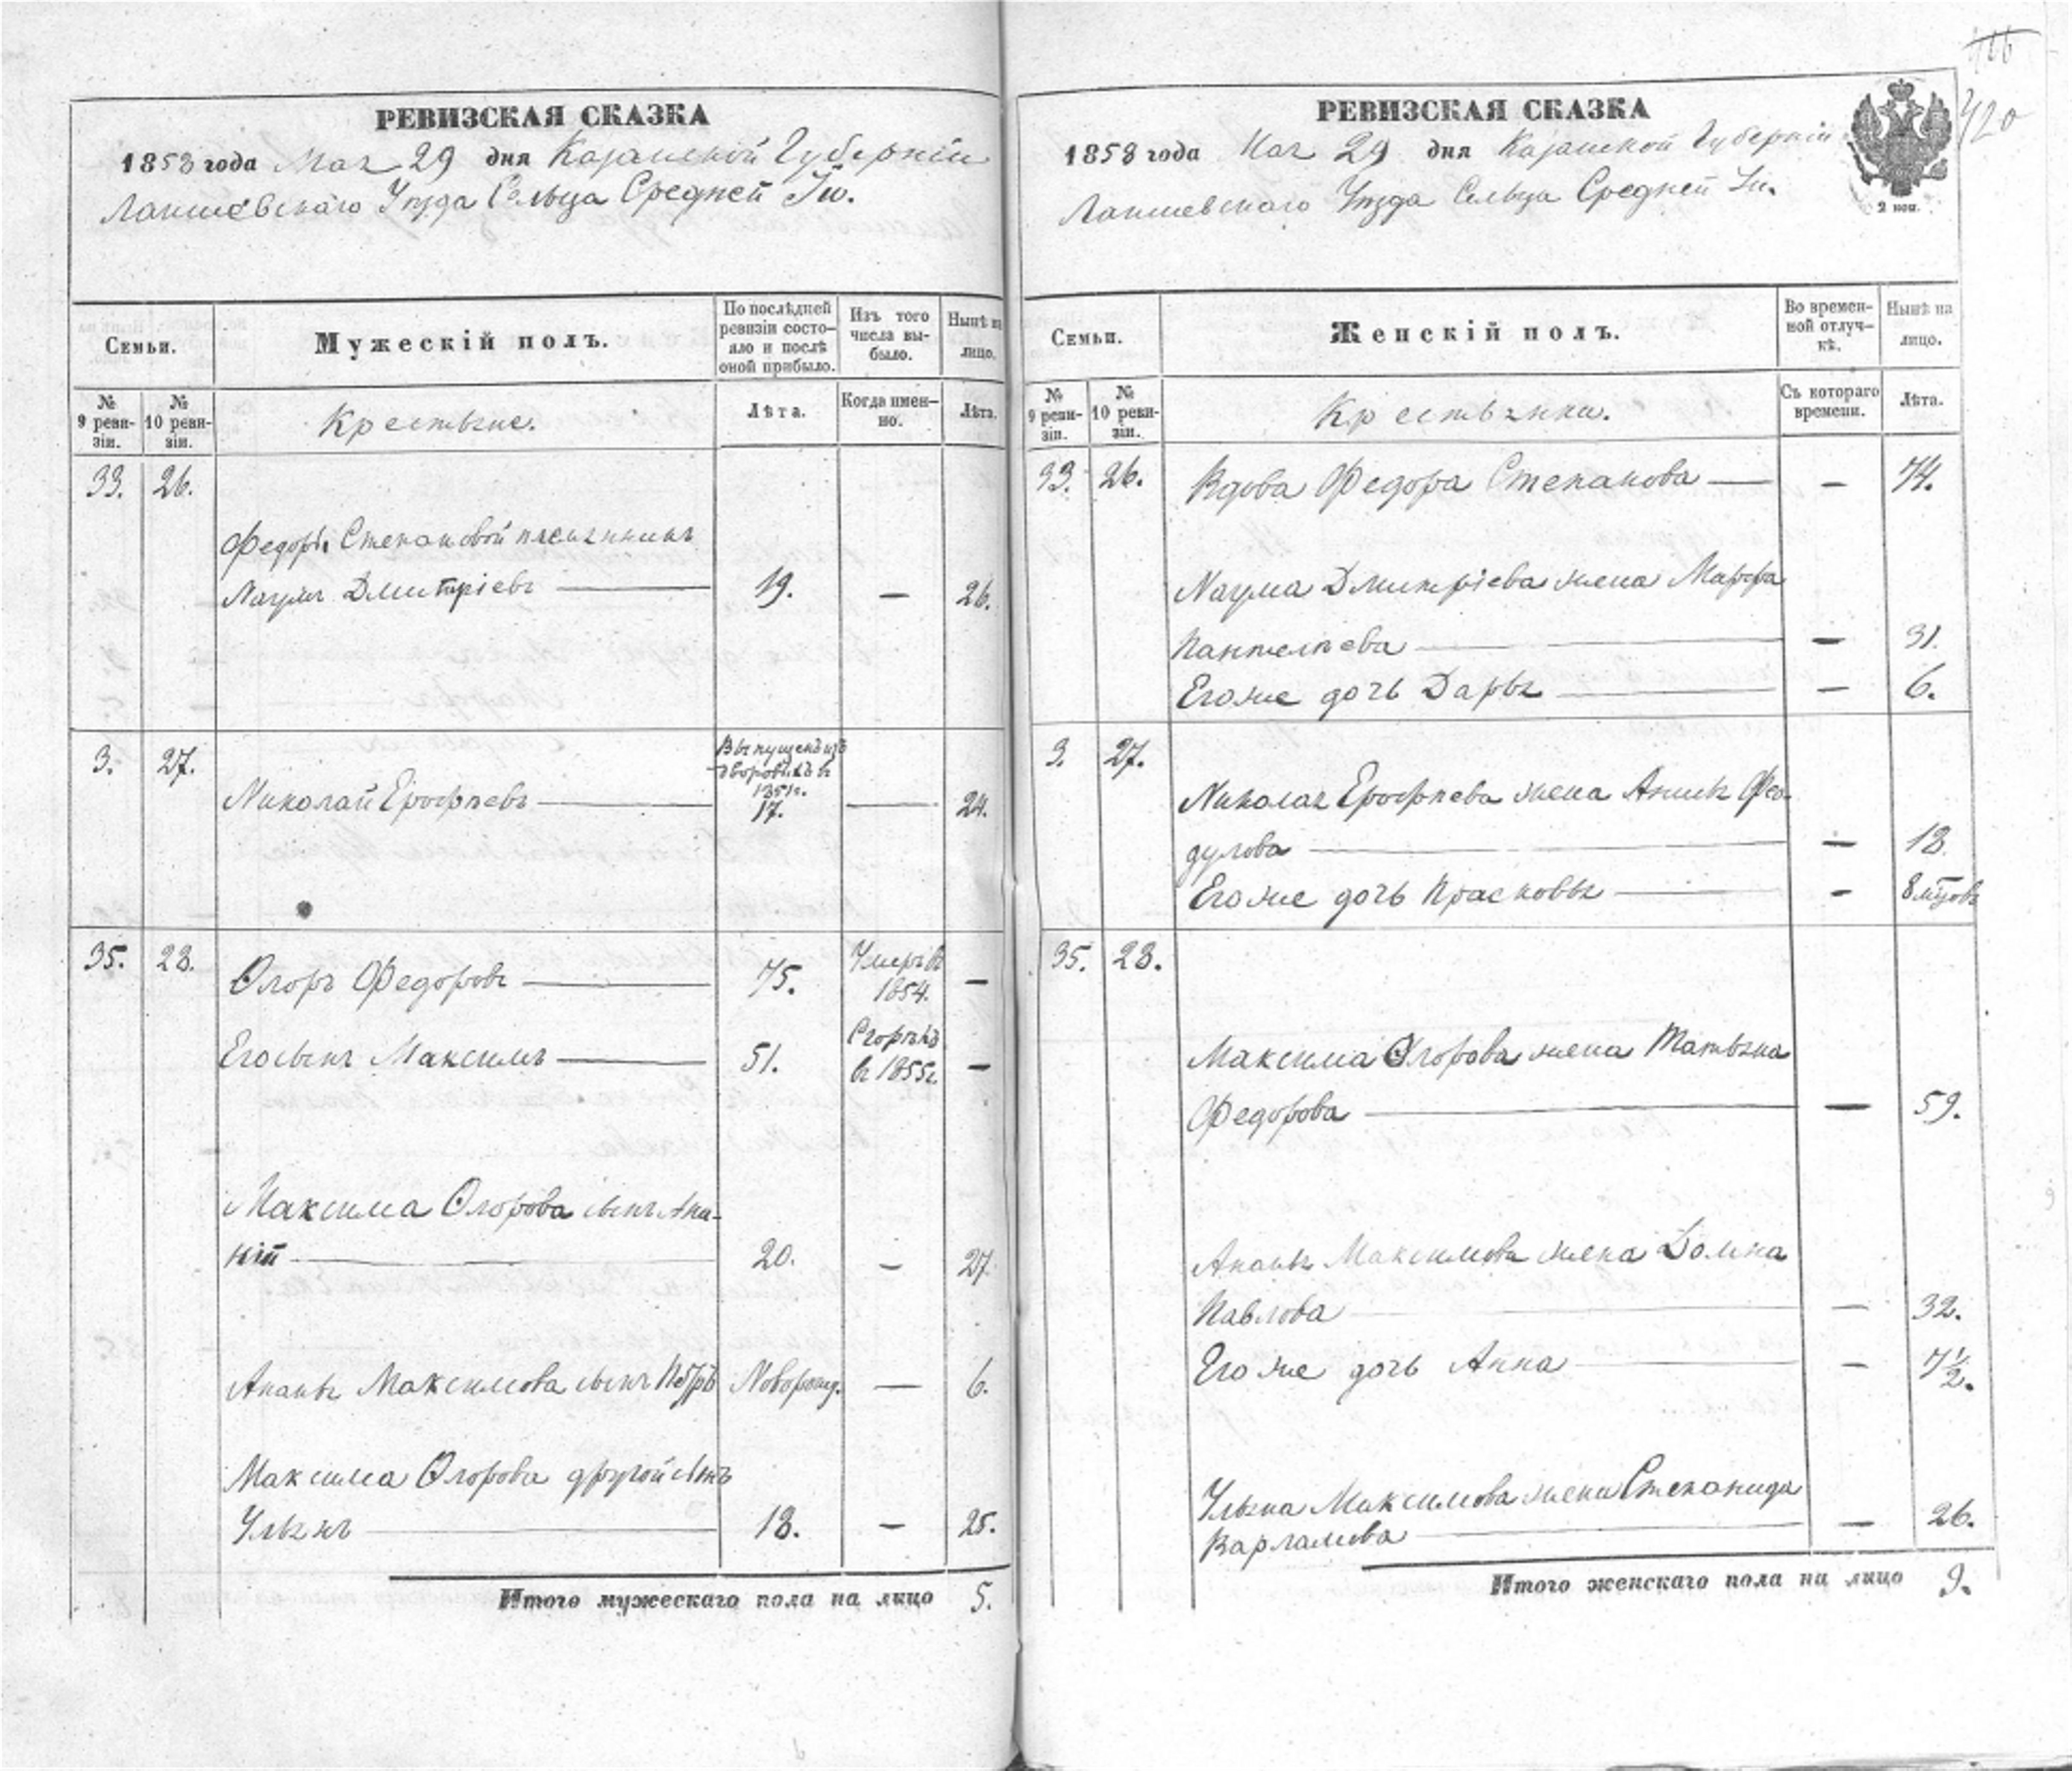 РЕВИЗСКАЯ СКАЗКА
1858 года Мая 29 дня Казанской Губерніи
Лаишевскаго Уѣзда Сельца Средней Ію.
Семьи.
Мужескій полъ.
По послѣдней
ревизіи состо-
яло и послѣ
оной прибыло.
Изъ того
числа вы-
было.
Нынѣ на
лицо.
№
9 реви-
зіи.
№
10 реви-
зіи.
Крестьяне.
Лѣта.
Когда имен-
но.
Лѣта.
33. 26.
Федоры Степановой племянникъ
Наумъ Дмитріевъ — 19. — 26.
3. 27.
Выпущенъ изъ
дворовыхъ въ
1851г.
Николай Ерофѣевъ — 17. — 24.
35. 28.
Егоръ Федоровъ — 75. Умеръ въ 1854. —
Его сынъ Максимъ — 51. Сгорѣлъ въ 1855г. —
Максима Егорова сынъ Ана-
ній — 20. — 27.
Ананья Максимова сынъ Петръ Новорожд. — 6.
Максима Егорова другой сынъ
Ульянъ — 18. — 25.
Итого мужескаго пола на лицо 5.
420
РЕВИЗСКАЯ СКАЗКА
1858 года Мая 29 дня Казанской Губерніи
Лаишевскаго Уѣзда Сельца Средней Ію.
2 коп.
Семьи.
Женскій полъ.
Во времен-
ной отлуч-
кѣ.
Нынѣ на
лицо.
№
9 реви-
зіи.
№
10 реви-
зіи.
Крестьянки.
Съ котораго
времени.
Лѣта.
33. 26. Вдова Федора Степанова — — 74.
Наума Дмитріева жена Марфа
Пантелѣева — — 31.
Его же дочь Дарья — — 6.
3. 27.
Николая Ерофѣева жена Анна Фео-
дулова — — 18.
Его же дочь Прасковья — — 8 мѣцовъ
35. 28.
Максима Егорова жена Татьяна
Федорова — — 59.
Ананья Максимова жена Домна
Павлова — — 32.
Его же дочь Анна — — 7½.
Ульяна Максимова жена Степанида
Варламова — — 26.
Итого женскаго пола на лицо 9.